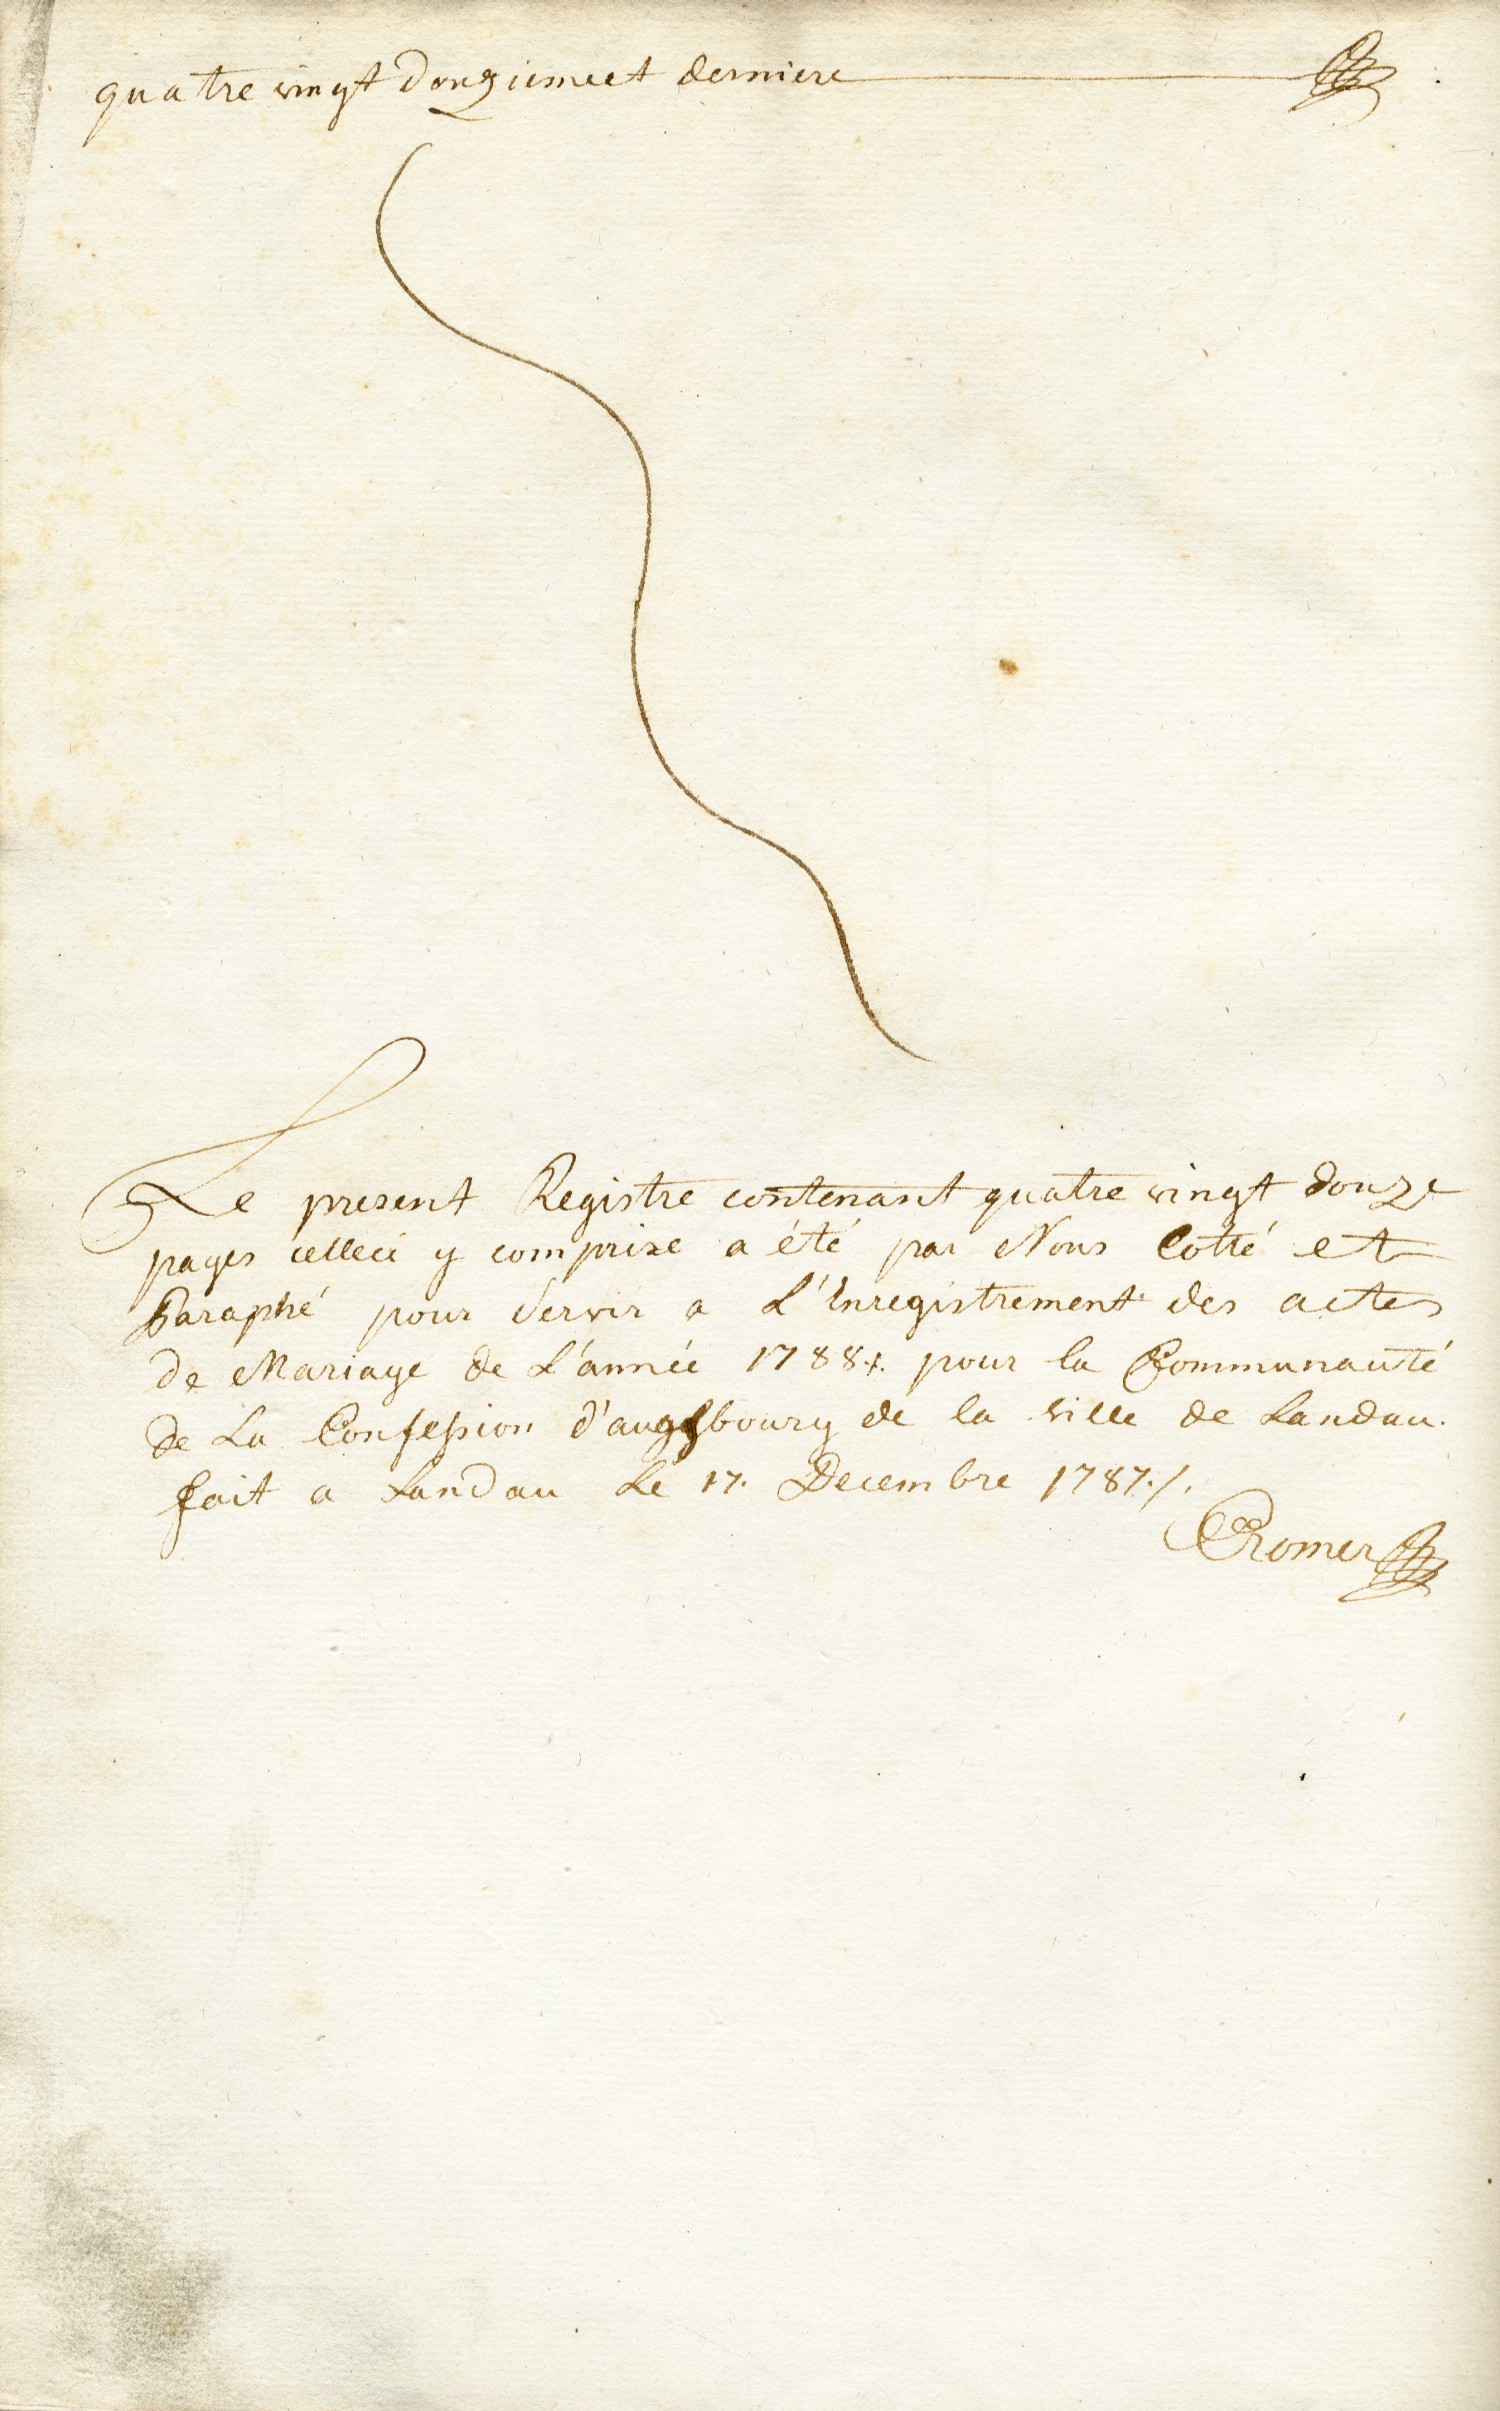 quatre vingt Douzieme et derniere
Le present Registre contenant quatre vingt douze
pages celleci y comprise a été par Nous Cotté et
Paraphé pour Servir a L'Enregistrement des actes
de Mariage de L'année 1788. pour la Communauté
de La Confession d'augsbourg de la ville de Landau.
fait a Landau Le 17. Decembre 1787./.
Romer